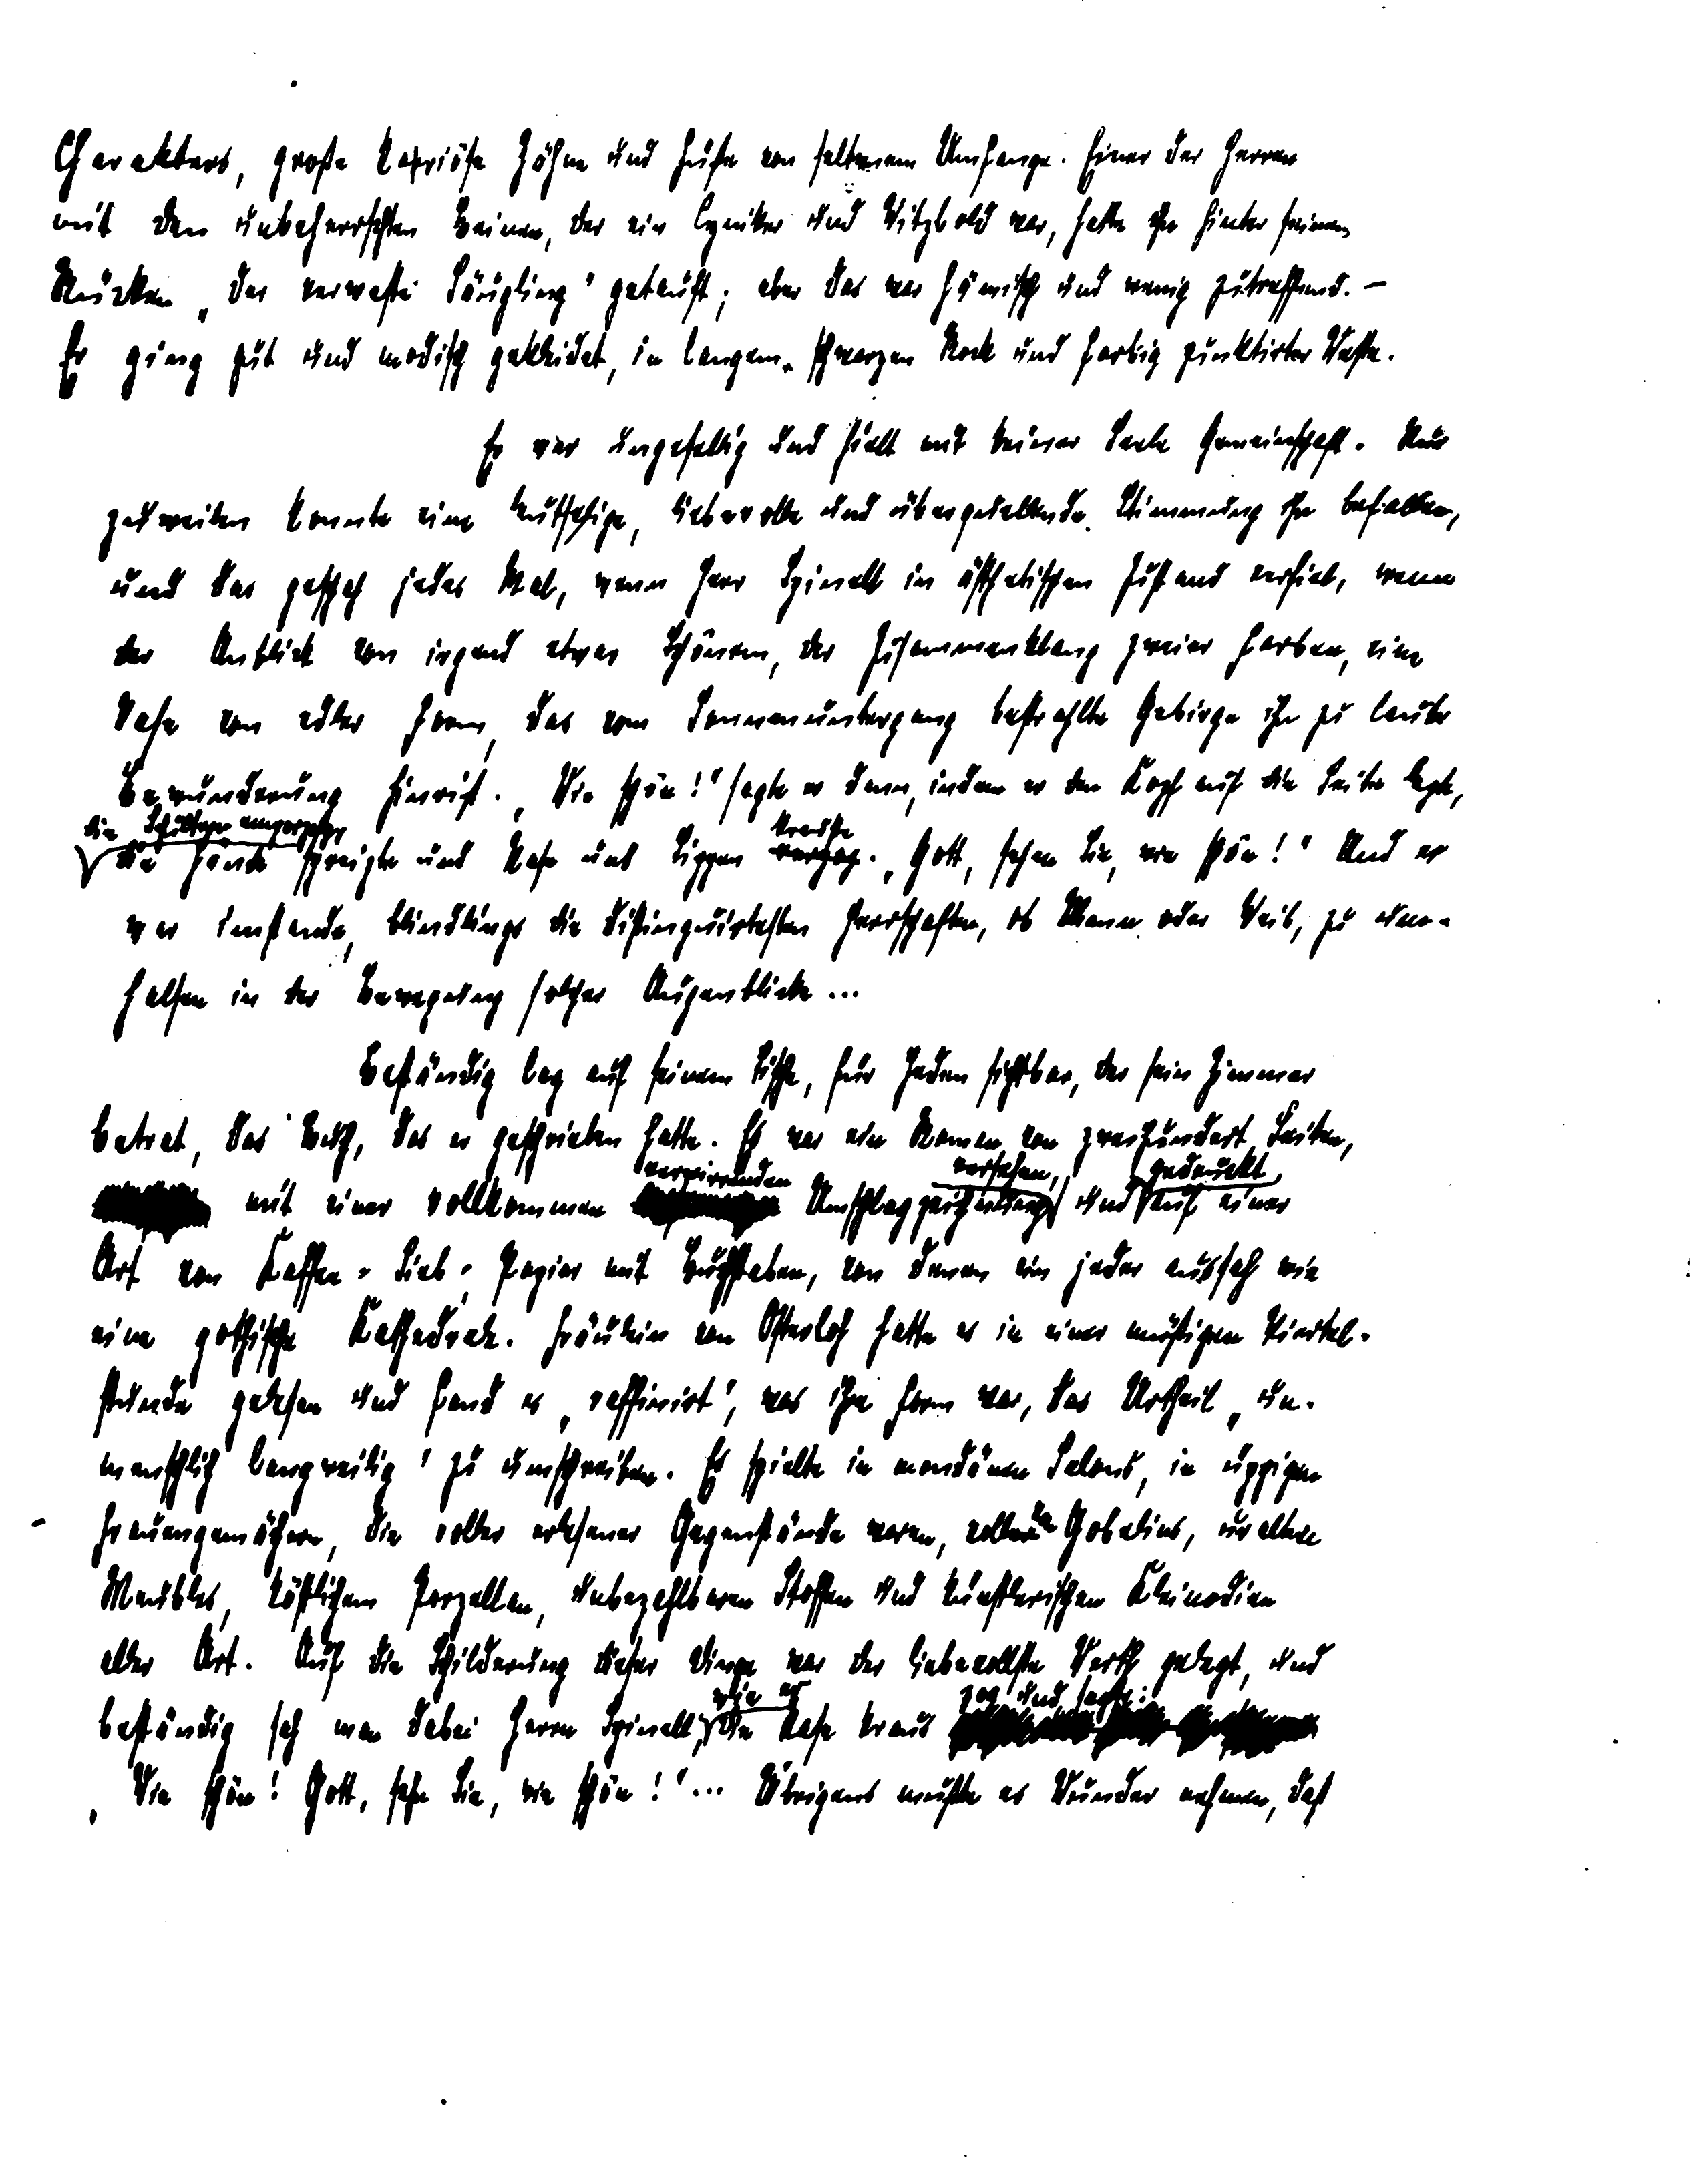 Charakters, große kariöse Zähne und Füße von seltenem Umfange. Einer der Herren
mit den unbeherrschten Beinen, der ein Cyniker und Witzbold war, hatte ihn hinter seinem
Rücken „der verweste Säugling" getauft; aber das war hämisch und wenig zutreffend. –
Er ging gut und modisch gekleidet, in langem, schwarzen Rock und farbig punktirter Weste.
Er war ungesellig und hielt mit keiner Seele Gemeinschaft. Nur
zuweilen konnte eine leutselige, liebevolle und überquellende Stimmung ihn befallen,
und das geschah jedes Mal, wenn Herr Spinell in ästhetischen Zustand verfiel, wenn
der Anblick von irgend etwas Schönem, der Zusammenklang zweier Farben, eine
Vase von edler Form, das vom Sonnenuntergang bestrahlte Gebirge ihn zu lauter
Bewunderung hinriß. „Wie schön!" sagte er dann, indem er den Kopf auf die Seite legte,
die Schultern emporzog,
die Hände spreizte und Nase und Lippen krauste. „Gott, sehen Sie, wie schön!" Und er
war imstande, blindlings die distinguirtesten Herrschaften, ob Mann oder Weib, zu um-
halsen in der Bewegung solcher Augenblicke ...
Beständig lag auf seinem Tische, für Jeden sichtbar, der sein Zimmer
betrat, das Buch, das er geschrieben hatte. Es war ein Roman von zweihundert Seiten,
mit einer vollkommen verwirrenden Umschlagzeichnung versehen, und gedruckt auf einer
Art von Kaffee-Sieb-Papier mit Buchstaben, von denen ein jeder aussah wie
eine gothische Kathedrale. Fräulein von Osterloh hatte es in einer müßigen Viertel-
stunde gelesen und fand es „raffinirt", was ihre Form war, das Urtheil „un-
menschlich langweilig" zu umschreiben. Es spielte in mondänen Salons, in üppigen
Frauengemächern, die voller erlesener Gegenstände waren, voll von Gobelins, uralten
Meubles, köstlichem Porzellan, unbezahlbaren Stoffen und künstlerischen Kleinodien
aller Art. Auf die Schilderung dieser Dinge war der liebevollste Werth gelegt, und
beständig sah man dabei Herrn Spinell, wie er die Nase kraus zog und sagte:
„Wie schön! Gott, sehn Sie, wie schön!" ... Übrigens mußte es Wunder nehmen, daß